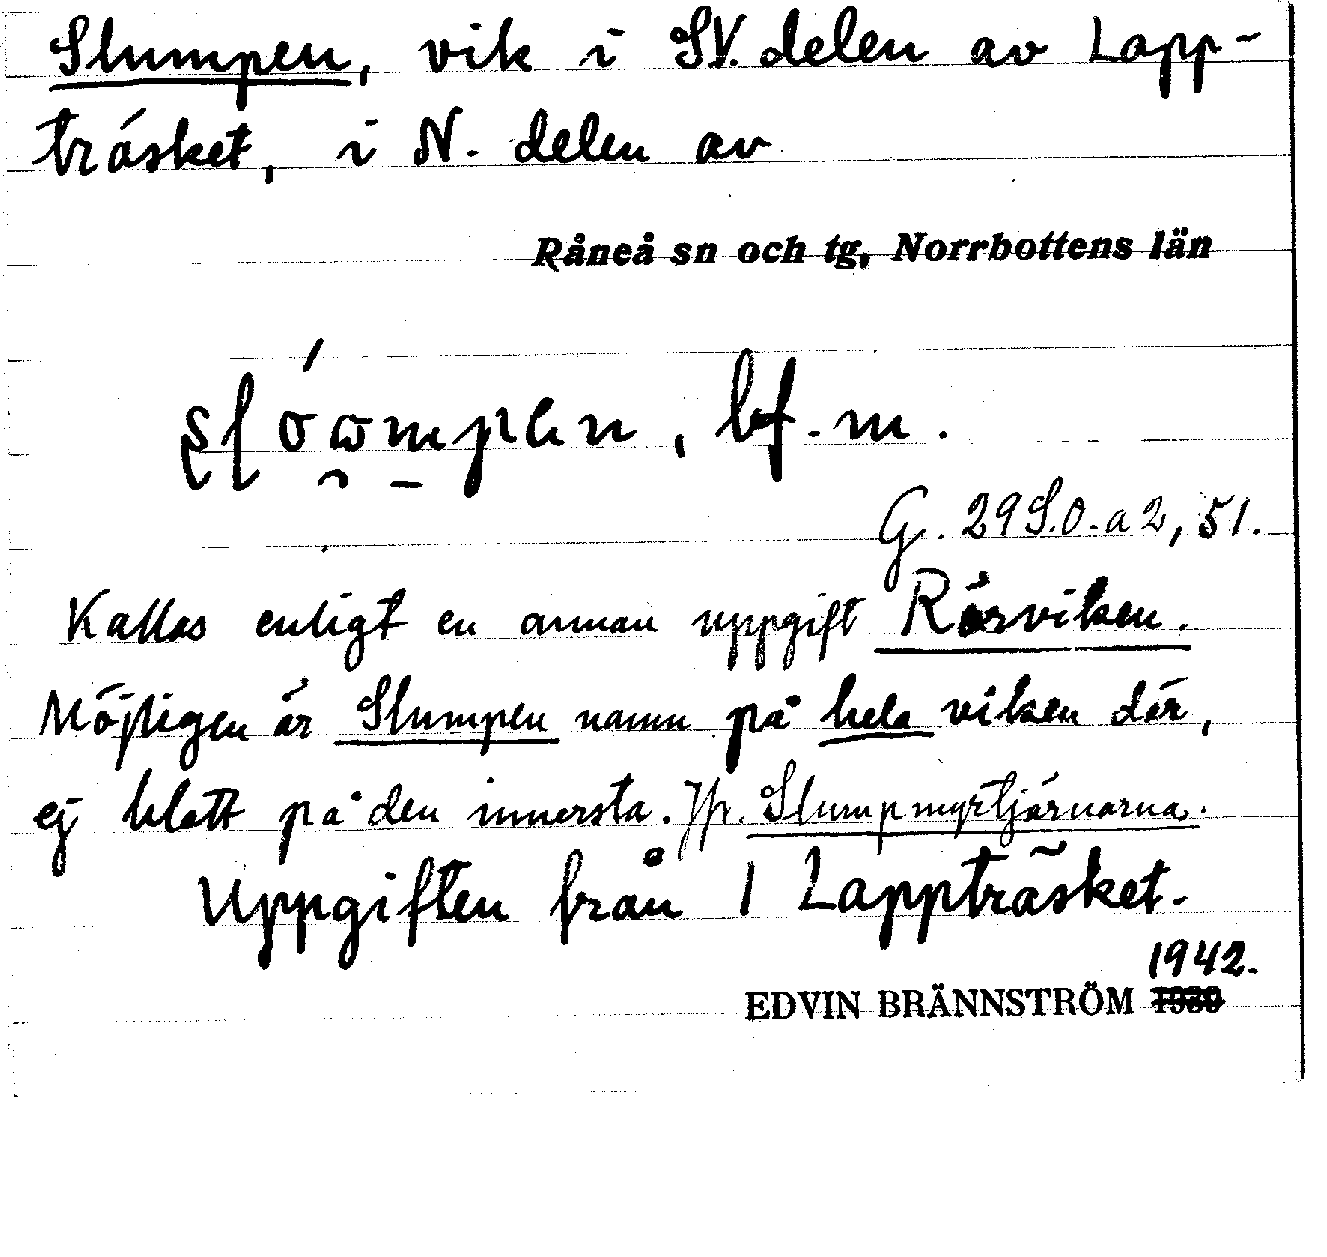 Slumpen, vik i SV. delen av Lapp-
träsket, i N. delen av
Råneå sn och tg, Norrbottens län
bf. m.
G. 29S.O.-a2, 51.
Kallas enligt en annan uppgift Rörviken.
Möjligen är Slumpen namn på hela viken där,
ej blott på den innersta. Jfr. Slumpmyrtjärnarna.
Uppgiften från 1 Lappträsket.
1942.
EDVIN BRÄNNSTRÖM 1930